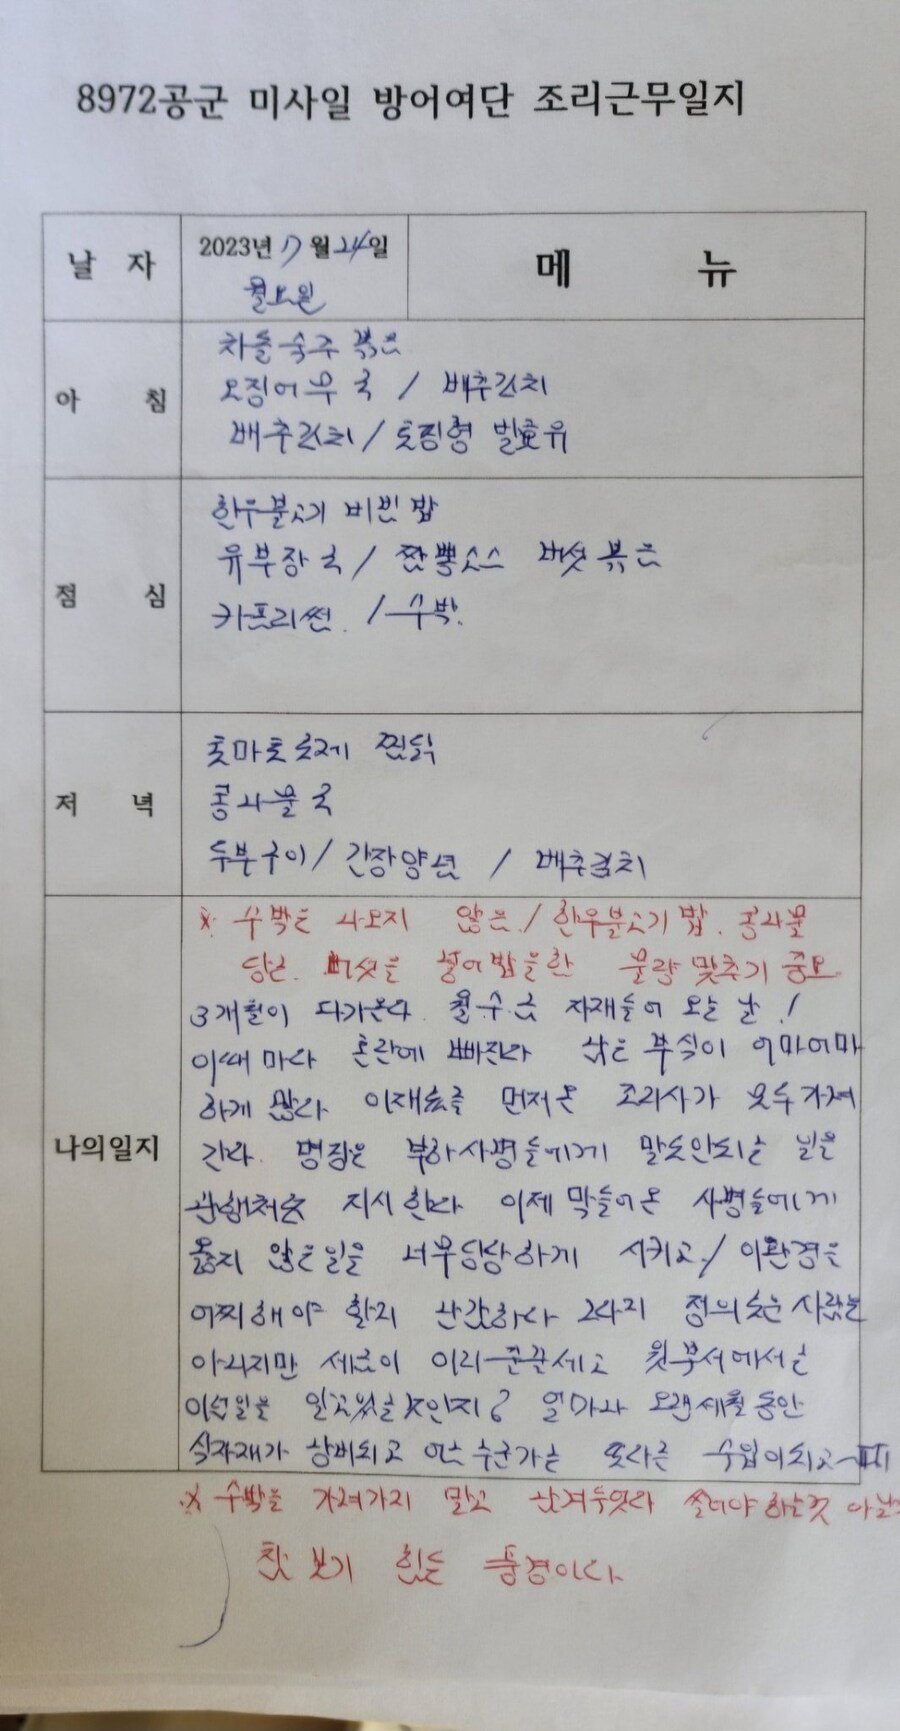 8972공군 미사일 방어여단 조리근무일지
날 자
2023년 7월 24일
월요일
메 뉴
아 침
차돌숙주 볶음
오징어무국 / 배추김치
배추김치 / 토핑형 발효유
점 심
한우불고기 비빔밥
유부장국 / 짬뽕소스 버섯볶음
카프리썬. / 수박.
저 녁
토마토 찜닭
콩나물국
두부구이 / 간장양념 / 배추김치
나의일지
※ 수박은 나오지 않음. / 한우불고기 밥. 콩나물
당근. 버섯을 물량 맞추기 중요
3개월이 다가온다 월.수.금 자재들이 오는 날!
이때마다 혼란에 빠진다 남은 부식이 어마어마
하게 많다 이재료를 먼저온 조리사가 모두 가져
간다. 명장은 부하사병들에게 말도안되는 일을
관행처럼 지시한다 이제 막들어온 사병들에게
옳지 않은일을 너무당당하게 시키고, / 이환경을
어찌해야 할지 난감하다 정의로운 사람은
아니지만 윗부서에서는
이런일을 알고있는것인지? 얼마나 오랜세월동안
식자재가 낭비되고 또다른 수입이되고~
※ 수박을 가져가지 말고 남겨두엇라 썰어야 하는것 아닌
참 보기 힘든 풍경이다